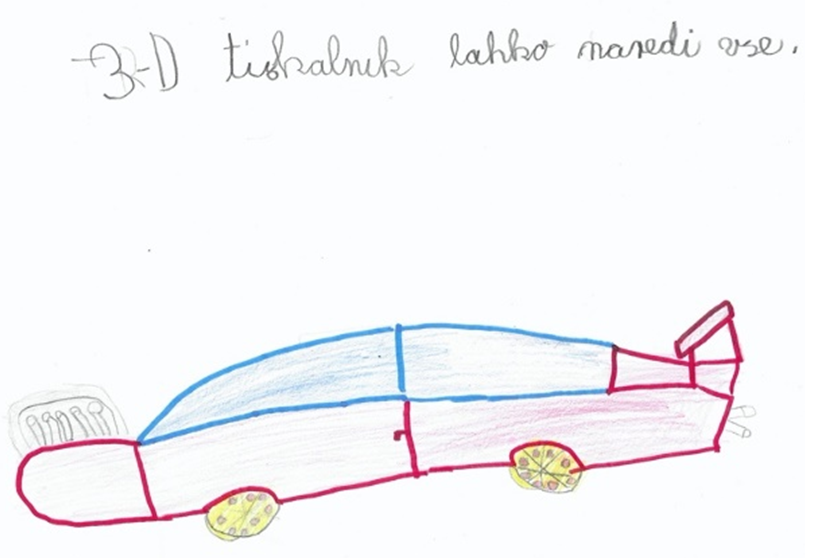 3-D tiskalnik lahko naredi vse.